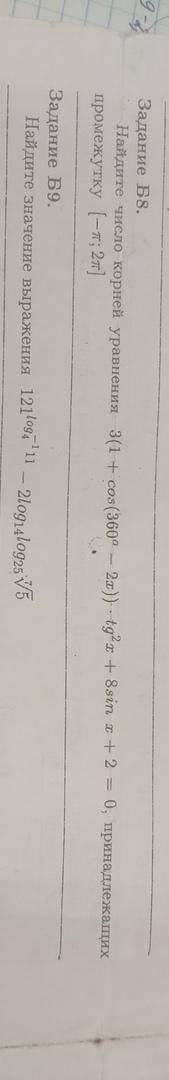 Задание Б8.
Найдите число корней уравнения 3(1 + cos(360° − 2x)) · tg²x + 8sin x + 2 = 0, принадлежащих
промежутку [−π; 2π]
Задание Б9.
Найдите значение выражения 121^{log₄⁻¹11} − 2log₁₄log₂₅⁷√5